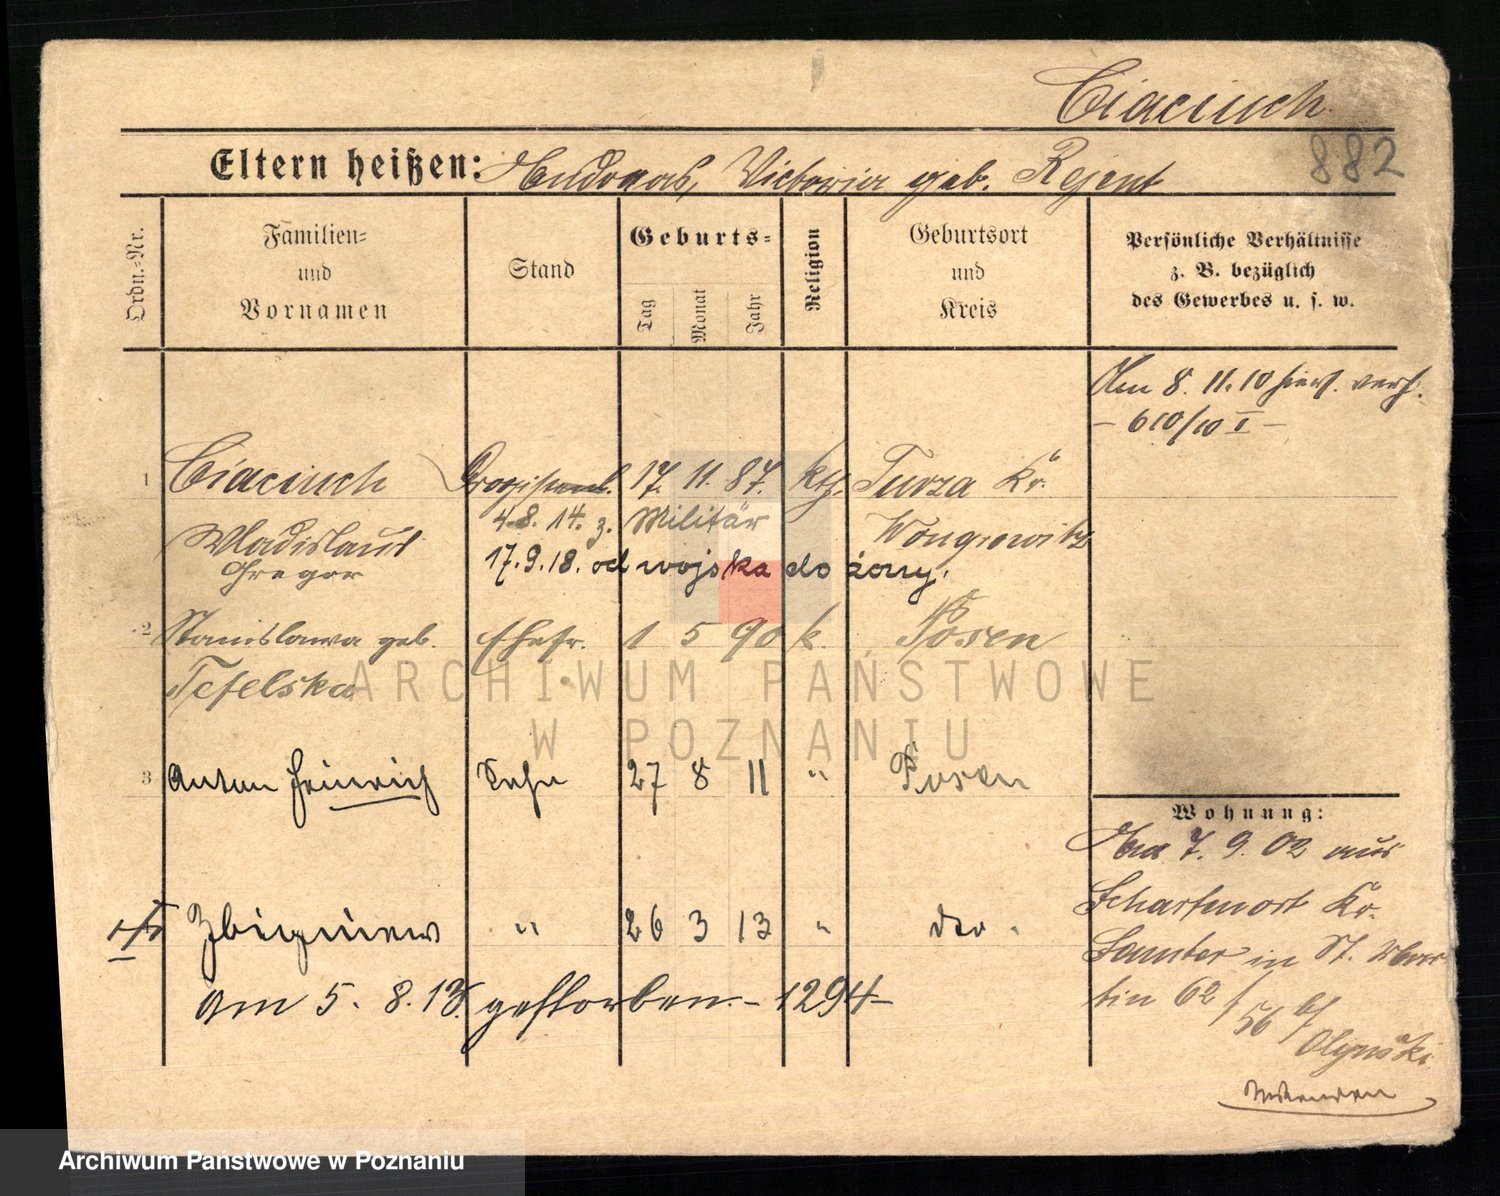 Ciaciuch
882
Eltern heißen: Andreas, Victoria geb. Rejent
Ordn.-Nr.
Familien-
und
Vornamen
Stand
Geburts-
Tag
Monat
Jahr
Religion
Geburtsort
und
Kreis
Persönliche Verhältnisse
z. B. bezüglich
des Gewerbes u. s. w.
Am 8. 11. 10 hiers. verh.
– 610/10 I –
1 Ciaciuch 17. 11. 87. kth. Turza Kr.
4.8. 14. z. Militär
Wladislaus Wongrowitz
Gregor
17.9.18. od wojska do żony.
2 Stanislawa geb. Ehefr. 1 5 90 k. Posen
Tefelska
3 Anton Heinrich Sohn 27 8 11 " Posen
Zbigniew " 26 3 13 " dto.
am 5. 8. 13. gestorben. – 1294 –
Wohnung:
7. 9. 02 aus
Scharfenort Kr.
Samter in St. Mar-
tin 62/56 b/
Olynski
ARCHIWUM PAŃSTWOWE
W POZNANIU
Archiwum Państwowe w Poznaniu